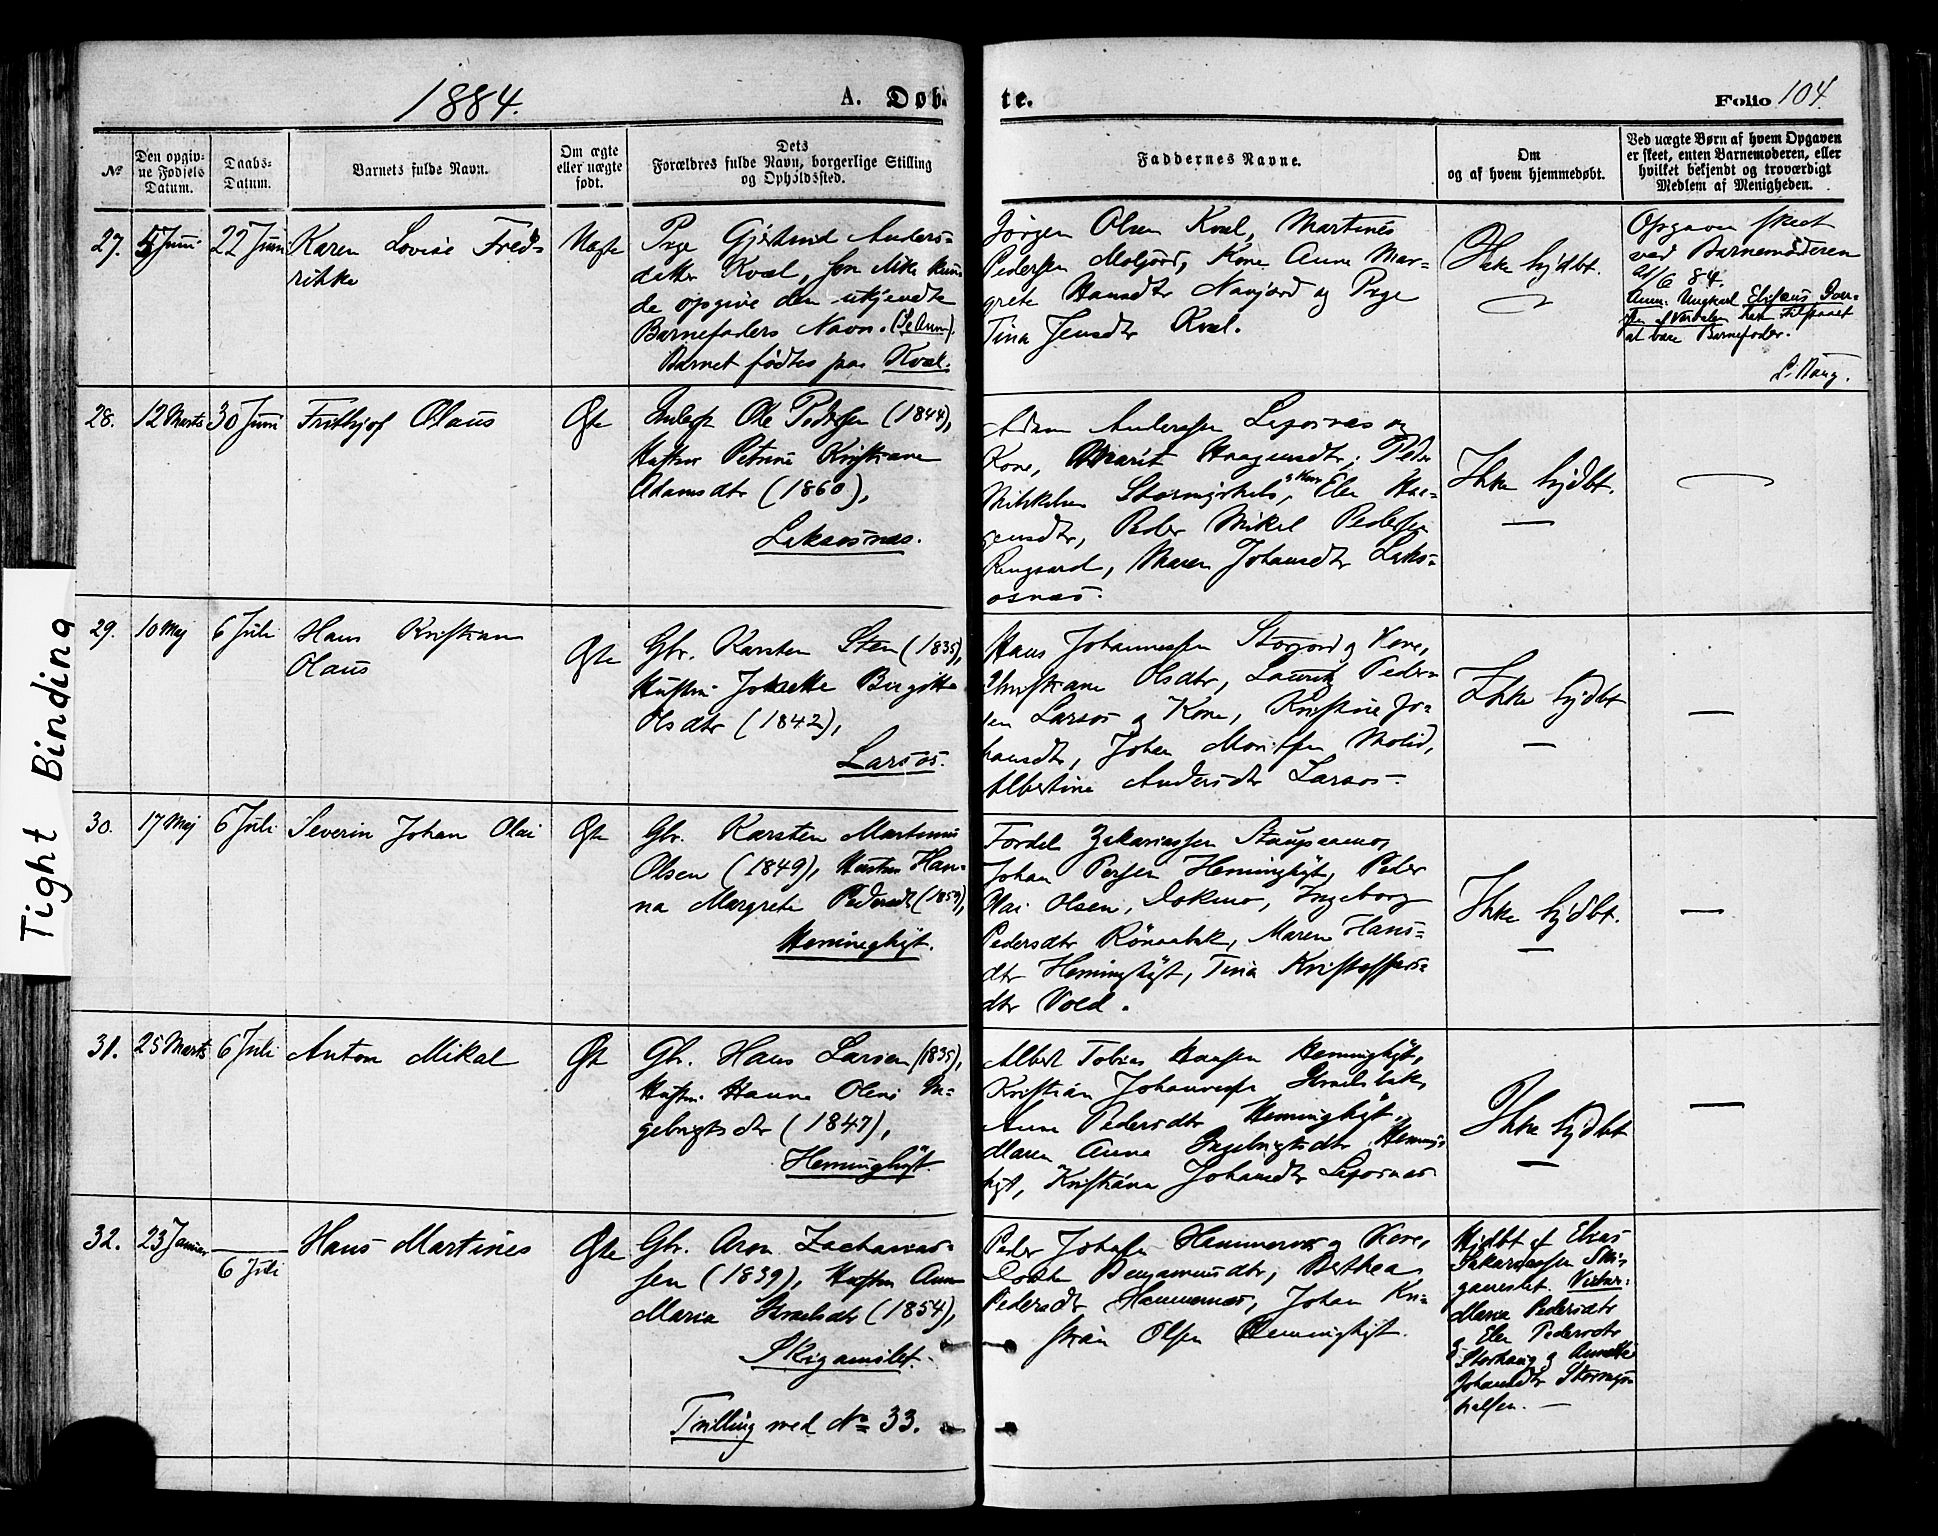 Tight Binding
1884.
A. Døb-
te.
Folio 104.
№
Den opgiv-
ne Fødsels
Datum.
Daabs-
Datum.
Barnets fulde Navn.
Om ægte
eller uægte
født.
Dets
Forældres fulde Navn, borgerlige Stilling
og Opholdssted.
Faddernes Navne.
Om
og af hvem hjemmedøbt.
Ved uægte Børn af hvem Opgaven
er skeet, enten Barnemoderen, eller
hvilket bekjendt og troværdigt
Medlem af Menigheden.
27.
5 Juni
22 Juni
Karen Lovise Fred-
rikke
Uægte
Pige Gjertrud Anders-
datter Kvæl, som ikke kun-
de opgive den ukjendte
Barnefaders Navn. (Se Anm).
Barnet fødtes paa Kvæl.
Jörgen Olsen Kvæl, Martines
Pedersen Moljord, Kone Anne Mar-
grete Hansdtr Navjord og Pige
Tina Jensdtr Kvæl.
Ikke hjdbt.
Opgaven skeet
ved Barnemoderen
21/6 84.
Anm. Ungkarl Elisæus Iver-
sen af Værdalen har tilstaaet
at være Barnefader.
28.
12 Marts
30 Juni
Frithjof Olaus
Ægte
Indlagt Ole Pedersen (1844),
Hustru Petrine Kristiane
Adamsdtr (1860),
Leksosnæs.
Adam Andersen Leksosnæs og
Kone, Marit Haagensdtr, Peder
Mikkelsen og Kone Elen Haa-
gensdtr, Peder Mikal Pedersen
Ringsaard, Maren Johansdtr Leks-
osnæs.
Ikke hjdbt.
29.
10 Maj
6 Juli
Hans Kristian
Olaus
Ægte
Gbr. Karsten Sten (1835),
Hustru Birgitte
Olsdtr (1842),
Larsos.
Hans Johannessen Storjord og Kone,
Christiane Olsdtr, Lauritz Peder-
sen Larsos og Kone, Kristine Jo-
hansdtr, Johan Molid,
Albertine Andersdtr Larsos.
Ikke hjdbt
30.
17 Maj
6 Juli
Severin Johan Olai
Ægte
Gbr. Karsten Martinus
Olsen (1849), Hustru Han-
na Margrete Pedersdt (1859),
Heminghyt.
Fordel Zakariassen
Johan Persen Heminghyt, Peder
Olai Olsen, Ingeborg
Pedersdtr Rönaabek, Maren Hans-
dtr Heminghyt, Tina Kristoffers-
dtr Vold.
Ikke hjdbt.
31.
25 Marts
6 Juli
Anton Mikal
Ægte
Gbr. Hans Larsen (1835),
Hustru Hanna Oline In-
gebrigtsdtr (1847),
Heminghyt
Albert Tobias Hansen Heminghyt,
Kristian Johannessen Israelsbak,
Anne Pedersdtr Heminghyt,
Maren Anna Ingebrigtsdtr Heming-
hyt, Kristiana Johansdtr
Ikke hjdbt
32.
23 Januar
6 Juli
Hans Martines
Ægte
Gbr. Aron Zacharias-
sen (1839), Hustru Anna
Maria Israelsdtr (1854),
Skigamslet.
Tvilling med № 33.
Peder Johnsen Hammernæs og Kone,
Benjaminsdtr, Berthea
Pedersdtr Hammernæs, Johan Kri-
stian Olsen Heminghyt.
Hjdbt af Elias
Zakariassen Ski-
gamslet. Vidner:
Maria Pedersdtr
& Elen Pedersdtr
Storhaug og
Johansdtr